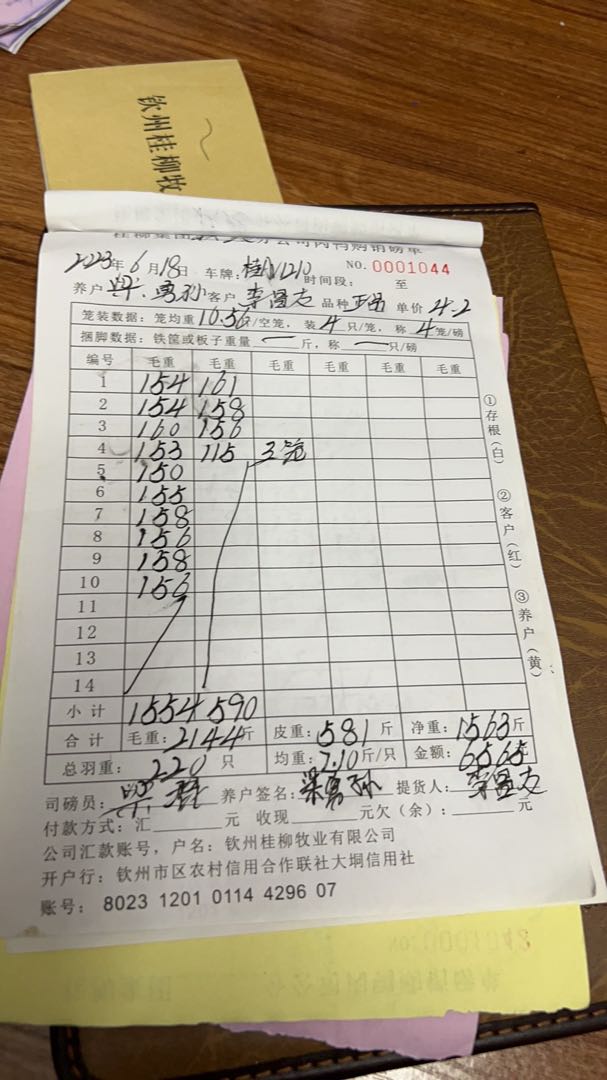 钦州桂柳牧
2023年6月18日 车牌: NO. 0001044
养户 客户 李昌志 时间段: 至
品种 正品 单价 4.2
笼装数据: 笼均重10.56斤/空笼, 装4只/笼, 称4笼/磅
捆脚数据: 铁筐或板子重量—斤, 称—只/磅
编号 毛重 毛重 毛重 毛重 毛重 毛重
1 154 161
2 154 158
3 160 156
4 153 115 3笼
5 150
6 155
7 158
8 156
9 158
10 156
11
12
13
14
小计 1554 590
合计 毛重:2144斤 皮重:581斤 净重:1563斤
总羽重: 220只 均重:7.10斤/只 金额:6565
司磅员: 养户签名:梁勇孙 提货人:李昌志
付款方式:汇 元 收现 元欠(余): 元
公司汇款账号, 户名: 钦州桂柳牧业有限公司
开户行: 钦州市区农村信用合作联社大垌信用社
账号: 8023 1201 0114 4296 07
①存根(白)
②客户(红)
③养户(黄)